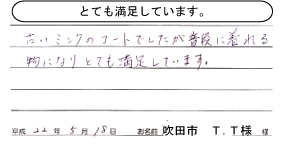 とても満足しています。
古いミンクのコートでしたが普段に着れる
物になりとても満足しています。
平成 22 年 5 月 18 日 お名前 吹田市 T.T様 様